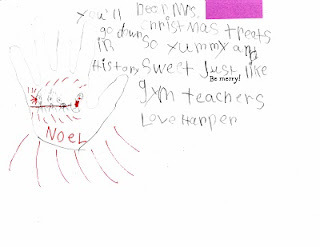 Dear Mrs.
Christmas treats
so yummy and
sweet Just like
Be merry!
gym teachers
Love Harper
you'll
go down
in
History
NOEL